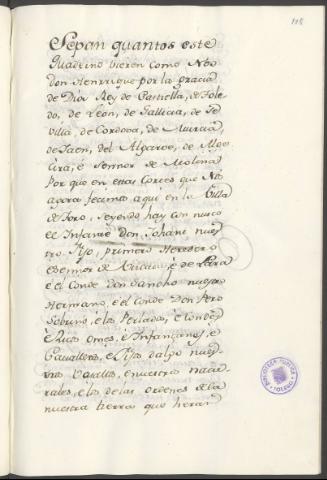 Sepan quantos este
Quaderno vieren como Nos
don Henrrique por la gracia
de Dios Rey de Castiella, de Tole
do, de Leon, de Gallicia, de Se
villa, de Cordova, de Murcia,
de Jaen, del Algarve, de Alge
cira, é Sennor de Molina
Por que en estas Cortes que Nos
agora fecimos aqui en la Villa
de Toro, seyendo hay con nusco
el Infante don Johan nues
tro Fijo, primero Heredero
é Sennor de é de Lara
é el Conde Don Sancho nuestro
Hermano, é el Conde Don Pero
Sobrino, é los Perlados, é Condes
é Ricos Omes, é Infanzones, é
Cavalleros, é Fijos dalgo nues
tros Vasallos, é nuestros natu
rales, é los de las Ordenes de la
nuestra tierra que heran
BIBLIOTECA PUBLICA
TOLEDO